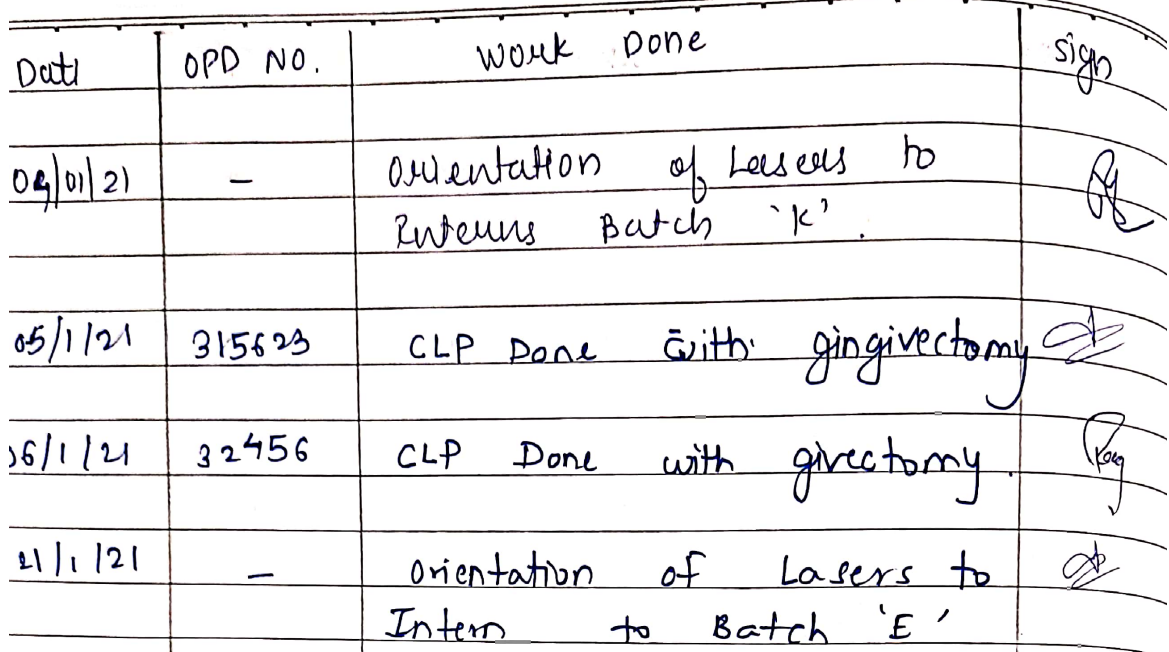 Date OPD NO. Work Done Sign
04/01/21 - Orientation of Lasers to
Interns Batch 'K'.
05/1/21 315623 CLP Done with gingivectomy
06/1/21 32456 CLP Done with givectomy.
21/1/21 - Orientation of Lasers to
Intern to Batch 'E'